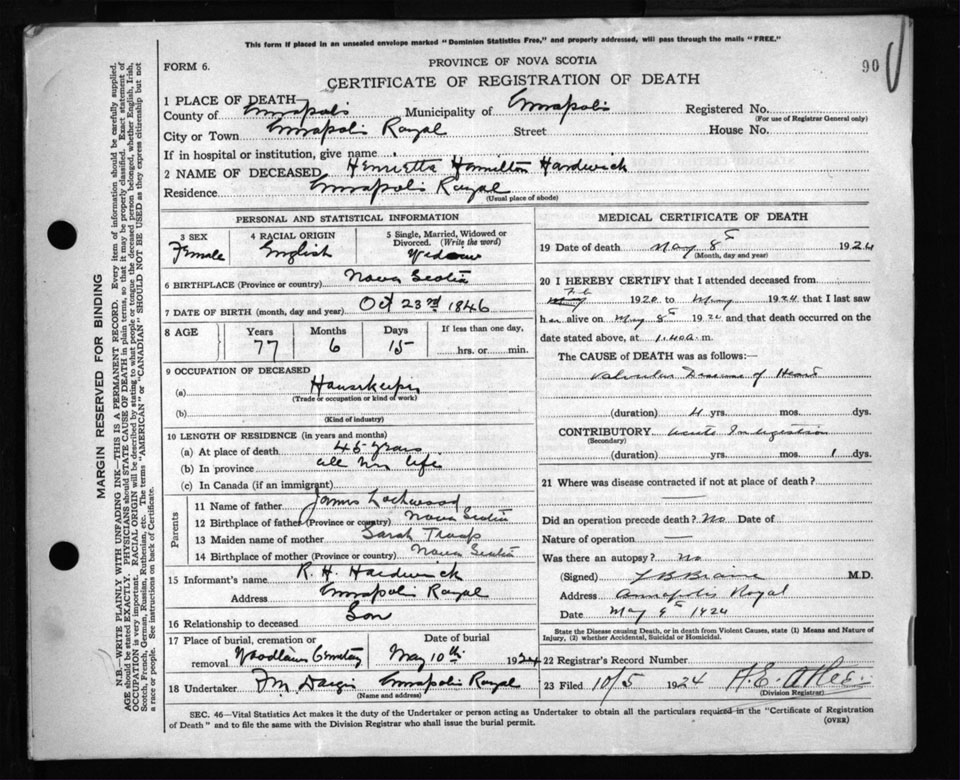 This form if placed in an unsealed envelope marked "Dominion Statistics Free," and properly addressed, will pass through the mails "FREE."
FORM 6.
PROVINCE OF NOVA SCOTIA
90
CERTIFICATE OF REGISTRATION OF DEATH
1 PLACE OF DEATH—
County of Annapolis Municipality of Annapolis Registered No.
(For use of Registrar General only)
City or Town Annapolis Royal Street House No.
If in hospital or institution, give name
2 NAME OF DECEASED Henrietta Hamilton Hardwick
Residence Annapolis Royal
(Usual place of abode)
PERSONAL AND STATISTICAL INFORMATION
3 SEX 4 RACIAL ORIGIN 5 Single, Married, Widowed or Divorced. (Write the word)
Female English Widow
6 BIRTHPLACE (Province or country) Nova Scotia
7 DATE OF BIRTH (month, day and year) Oct 23rd 1846
8 AGE Years Months Days If less than one day,
77 6 15 hrs. or min.
9 OCCUPATION OF DECEASED
(a) Housekeeper
(Trade or occupation or kind of work)
(b)
(Kind of industry)
10 LENGTH OF RESIDENCE (in years and months)
(a) At place of death 45 years
(b) In province all her life
(c) In Canada (if an immigrant)
Parents
11 Name of father James Lockwood
12 Birthplace of father (Province or country) Nova Scotia
13 Maiden name of mother Sarah Troop
14 Birthplace of mother (Province or country) Nova Scotia
15 Informant's name R. H. Hardwick
Address Annapolis Royal
16 Relationship to deceased Son
17 Place of burial, cremation or removal Woodlawn Cemetery Date of burial May 10th 1924
18 Undertaker F M Annapolis Royal
(Name and address)
MEDICAL CERTIFICATE OF DEATH
19 Date of death May 8th 1924
(Month, day and year)
20 I HEREBY CERTIFY that I attended deceased from
Feb 1920 to May 1924 that I last saw
her alive on May 8th 1924 and that death occurred on the
date stated above, at 1.40 a. m.
The CAUSE of DEATH was as follows:—
Valvular Disease of Heart
(duration) 4 yrs. mos. dys.
CONTRIBUTORY Acute Indigestion
(Secondary)
(duration) yrs. mos. 1 dys.
21 Where was disease contracted if not at place of death?
Did an operation precede death? No Date of
Nature of operation —
Was there an autopsy? No
(Signed) L B Braine M.D.
Address Annapolis Royal
Date May 9th 1924
State the Disease causing Death, or in death from Violent Causes, state (1) Means and Nature of Injury, (2) whether Accidental, Suicidal or Homicidal.
22 Registrar's Record Number
23 Filed 10/5 1924 A.E. Atlee
(Division Registrar)
SEC. 46—Vital Statistics Act makes it the duty of the Undertaker or person acting as Undertaker to obtain all the particulars required in the "Certificate of Registration
of Death" and to file the same with the Division Registrar who shall issue the burial permit.
(OVER)
MARGIN RESERVED FOR BINDING
N.B.—WRITE PLAINLY WITH UNFADING INK—THIS IS A PERMANENT RECORD. Every item of information should be carefully supplied.
AGE should be stated EXACTLY. PHYSICIANS should STATE CAUSE OF DEATH in plain terms, so that it may be properly classified. Exact statement of
OCCUPATION is very important. RACIAL ORIGIN will be described by stating to what people or tongue the deceased person belonged, whether English, Irish,
Scotch, French, German, Russian, Ruthenian, etc. The terms "AMERICAN" or "CANADIAN" SHOULD NOT BE USED as they express citizenship but not
a race or people. See instructions on back of Certificate.